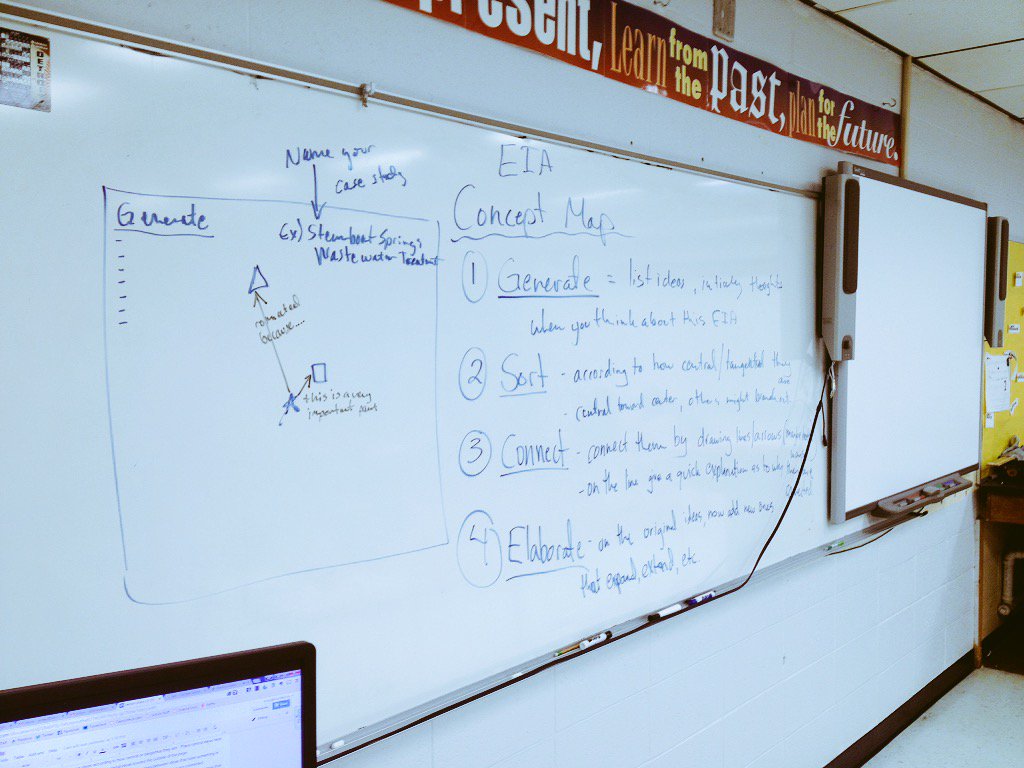 present, Learn from the past, plan for the future.
Name your
case study
Generate
Ex) Steamboat Springs
Wastewater Treatment
connected
because....
this is a very
important point
EIA
Concept Map
1 Generate = list ideas, initially thoughts
when you think about this EIA
2 Sort - according to how central/tangential they are
- central toward center, others might branch out
3 Connect - connect them by drawing lines/arrows/
- on the line give a quick explanation as to why they are connected
4 Elaborate - on the original ideas, now add new ones
that expand, extend, etc.